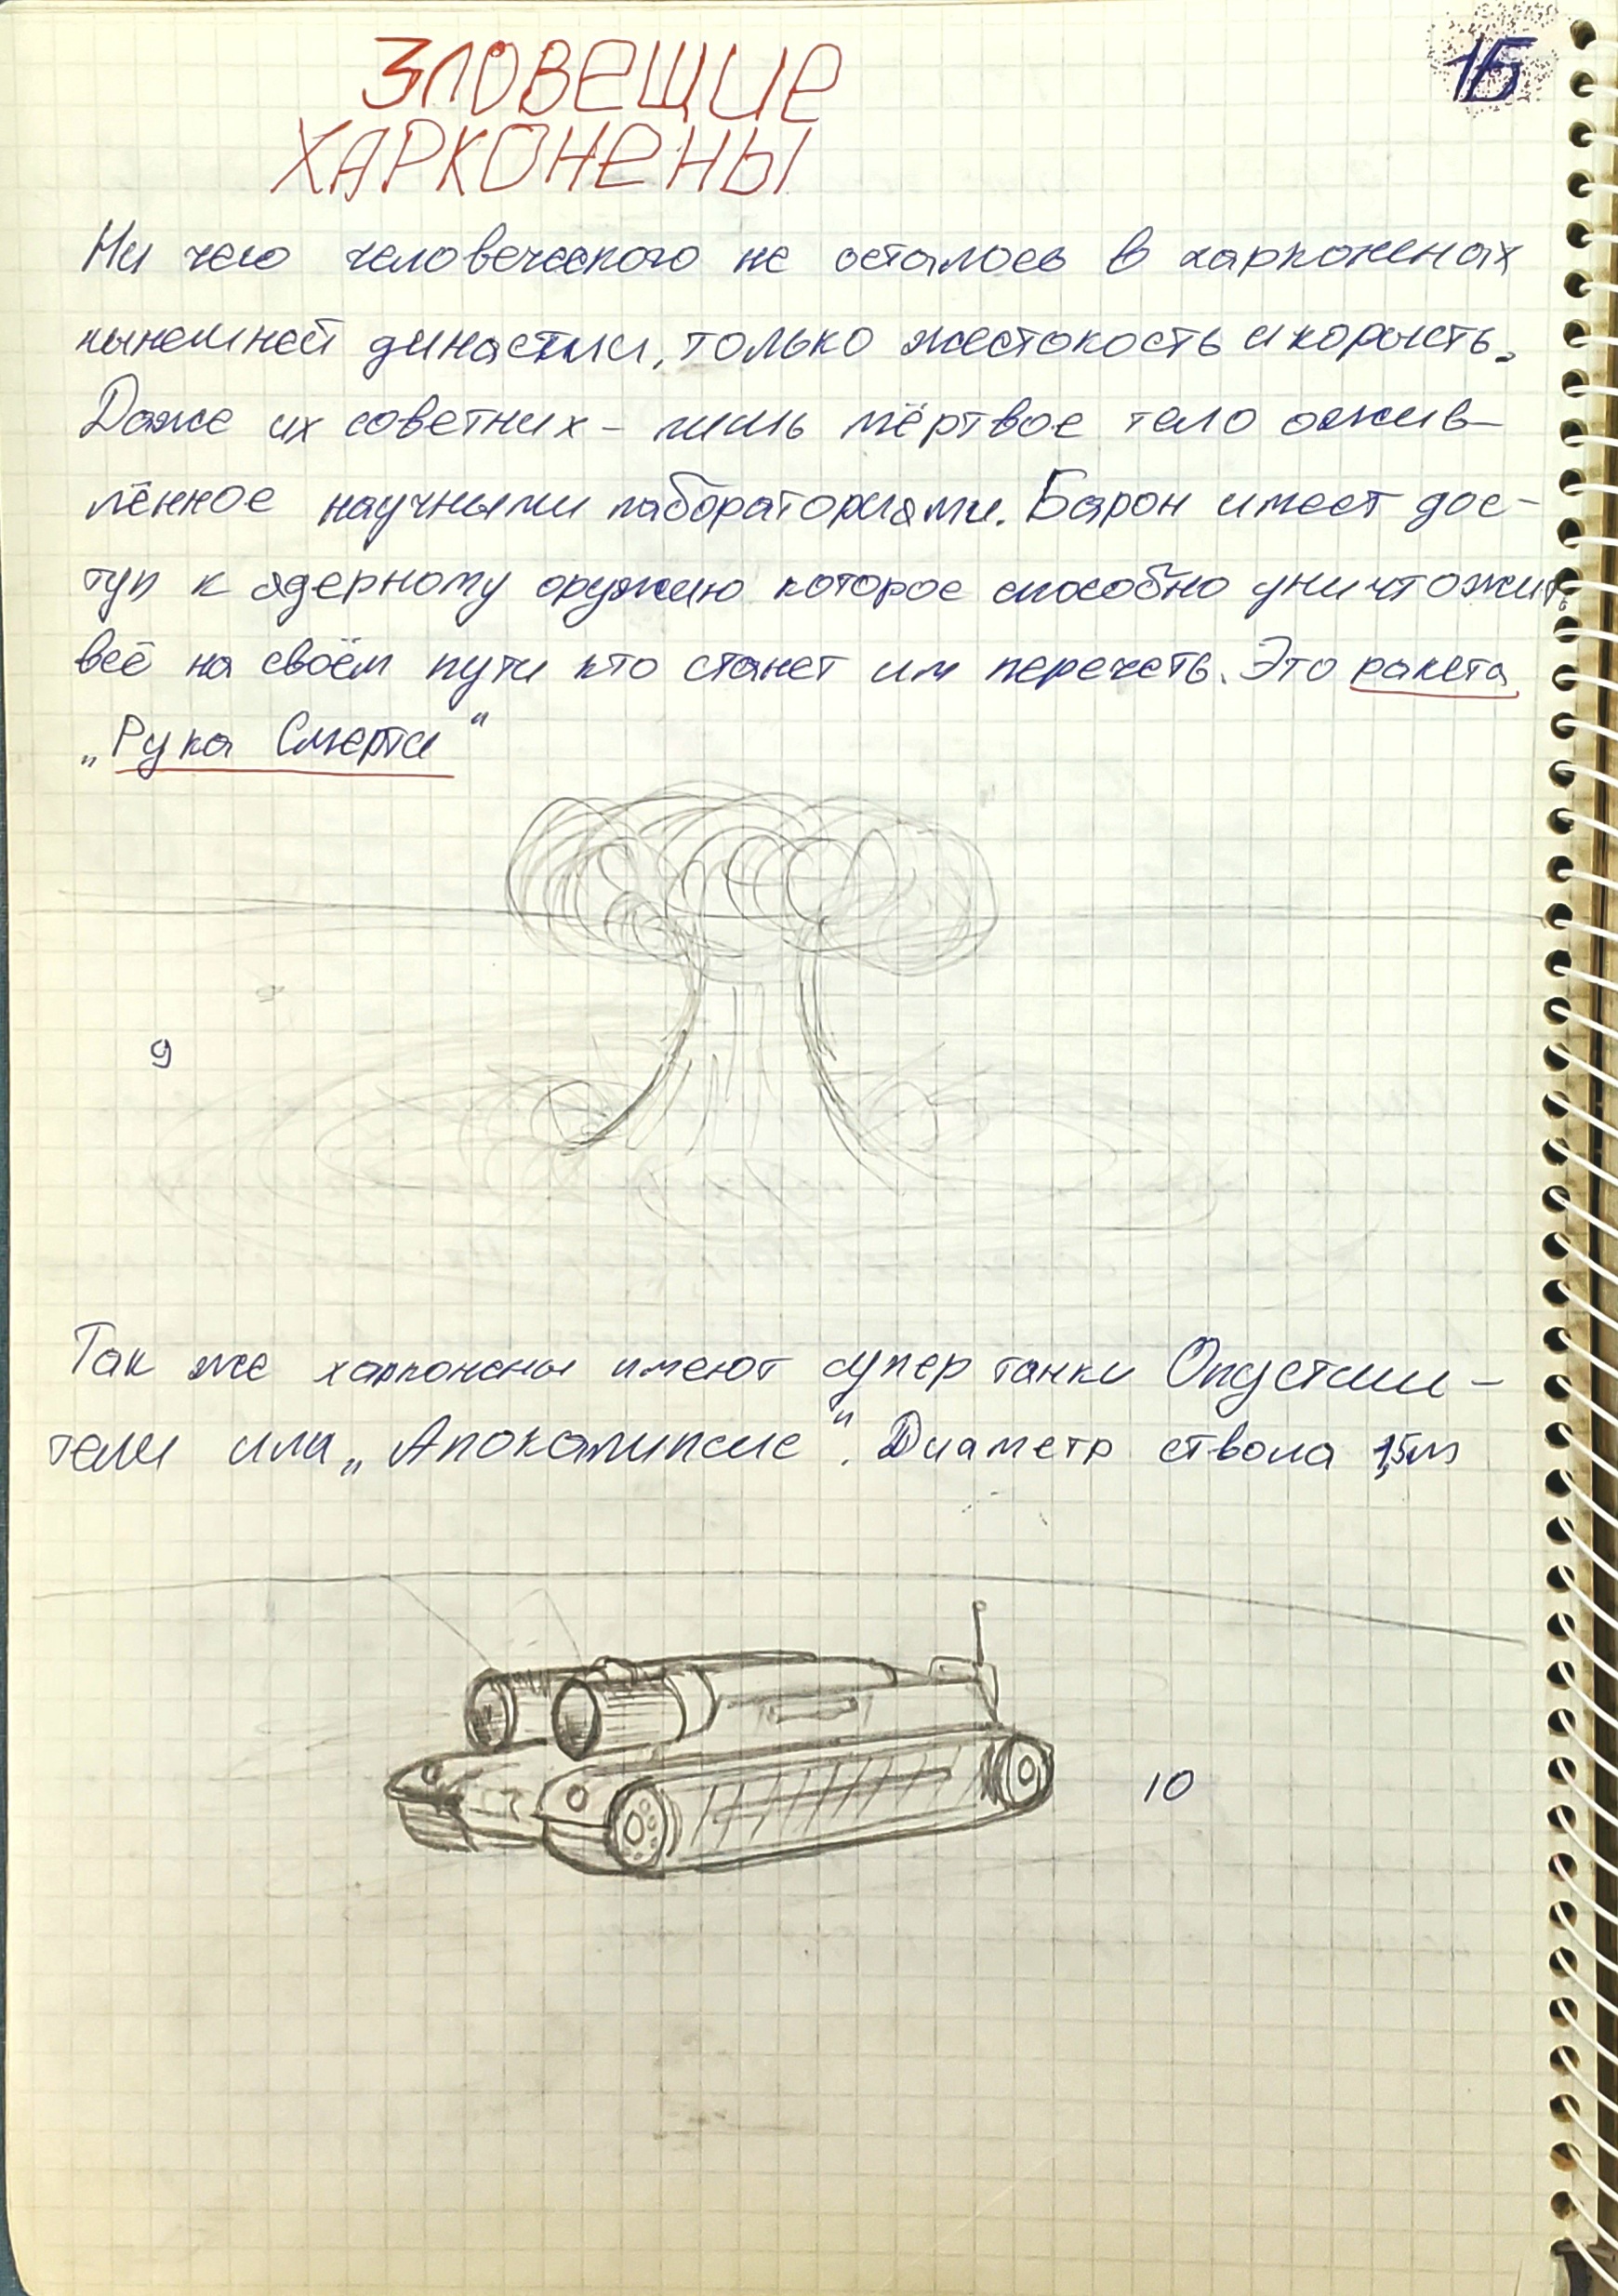 15
ЗЛОВЕЩИЕ
ХАРКОНЕНЫ
Ни чего человеческого не осталось в харконенах
нынешней династии, только жестокость и корысть.
Даже их советник - лишь мёртвое тело ожив-
лённое научными лабораториями. Барон имеет дос-
туп к ядерному оружию которое способно уничтожить
всё на своём пути кто станет им перечеть. Это ракета
„Рука Смерти“
9
Так же харконены имеют супер танки Опустоши-
тели или „Апокалипсис“. Диаметр ствола 1,5м
10